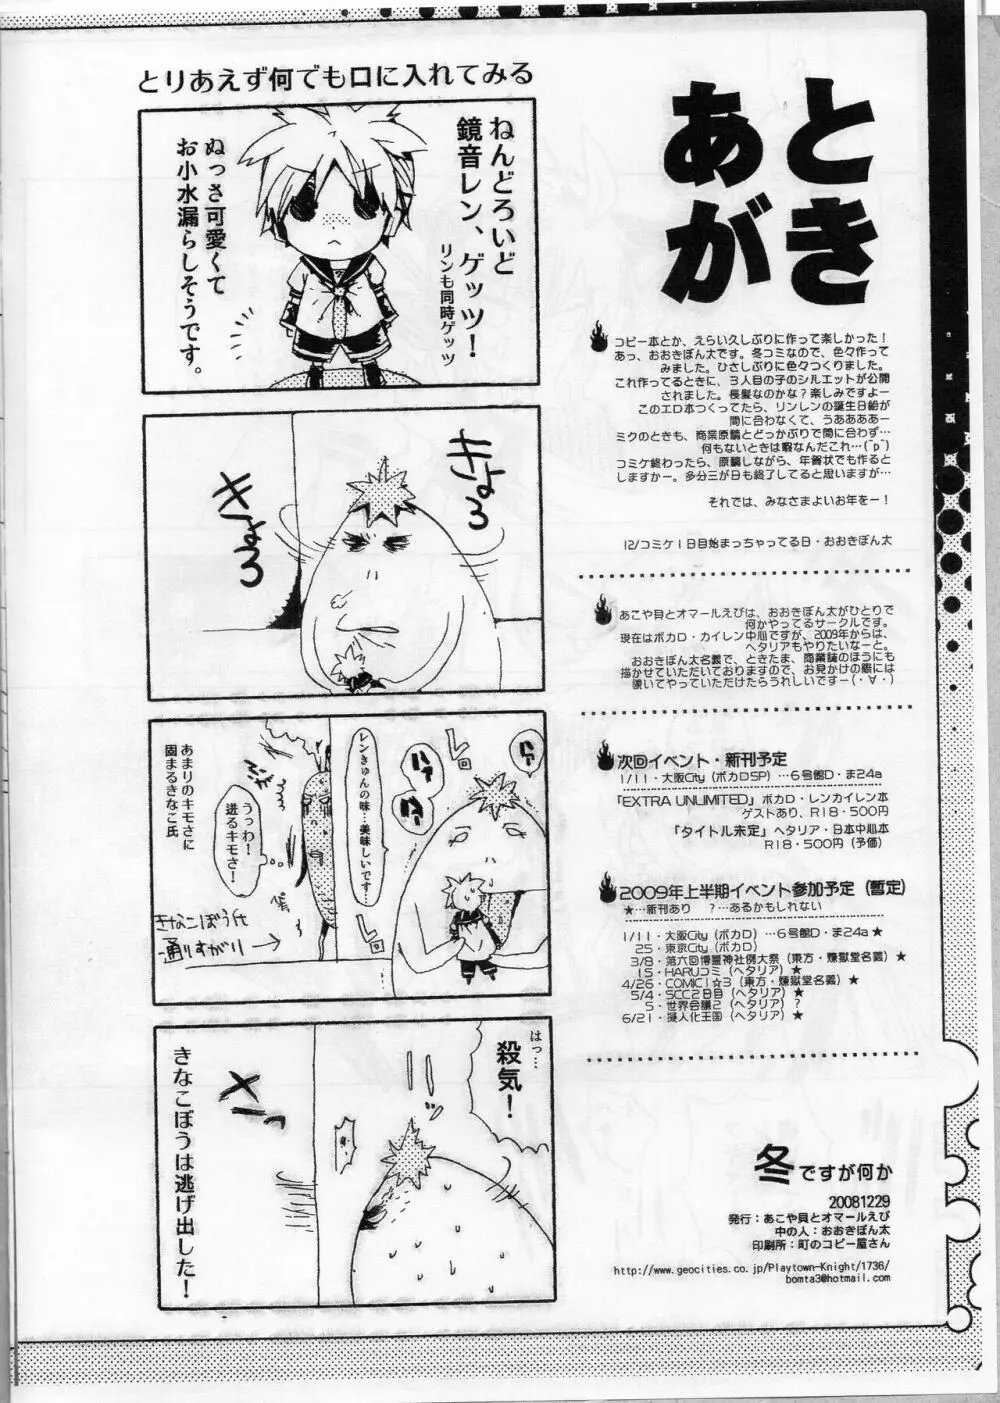 あとがき
コピー本とか、えらい久しぶりに作って楽しかった！
あっ、おおきぼん太です。冬コミなので、色々作って
みました。ひさしぶりに色々つくりました。
これ作ってるときに、３人目の子のシルエットが公開
されました。長髪なのかな？楽しみですよー
このエロ本つくってたら、リンレンの誕生日絵が
間に合わなくて、うああああー
ミクのときも、商業原稿とどっかぶりで間に合わず…
何もないときは暇なんだこれ…(ˉpˉ)
コミケ終わったら、原稿しながら、年賀状でも作ると
しますかー。多分三が日も終了してると思いますが…
それでは、みなさまよいお年をー！
12/コミケ１日目始まっちゃってる日・おおきぼん太
あこや貝とオマールえびは、おおきぼん太がひとりで
何かやってるサークルです。
現在はボカロ・カイレン中心ですが、2009年からは、
ヘタリアもやりたいなーと。
おおきぼん太名義で、ときたま、商業誌のほうにも
描かせていただいておりますので、お見かけの際には
覗いてやっていただけたらうれしいですー(・∀・)
次回イベント・新刊予定
1/11・大阪City（ボカロSP）…６号館D・ま24a
「EXTRA UNLIMITED」ボカロ・レンカイレン本
ゲストあり、R18・500円
「タイトル未定」ヘタリア・日本中心本
R18・500円（予価）
2009年上半期イベント参加予定（暫定）
★…新刊あり　？…あるかもしれない
1/11・大阪City（ボカロ）…６号館D・ま24a★
25・東京City（ボカロ）
3/8・第六回博麗神社例大祭（東方・煉獄堂名義）★
15・HARUコミ（ヘタリア）★
4/26・COMIC1☆3（東方・煉獄堂名義）★
5/4・SCC2日目（ヘタリア）★
5・世界会議2（ヘタリア）？
6/21・擬人化王国（ヘタリア）★
冬ですが何か
20081229
発行：あこや貝とオマールえび
中の人：おおきぼん太
印刷所：町のコピー屋さん
http://www.geocities.co.jp/Playtown-Knight/1736/
bomta3@hotmail.com
とりあえず何でも口に入れてみる
ねんどろいど
鏡音レン、ゲッツ！
リンも同時ゲッツ
ぬっさ可愛くて
お小水漏らしそうです。
きょろ
きょろ
ハァ
レロ
ハァ
ハァ
レンきゅんの味…美味しいです…
レロ
うっわ！
迸るキモさ！
あまりのキモさに
固まるきなこ氏
きなこぼう氏
通りすがり→
はっ…
殺気！
きなこぼうは逃げ出した！